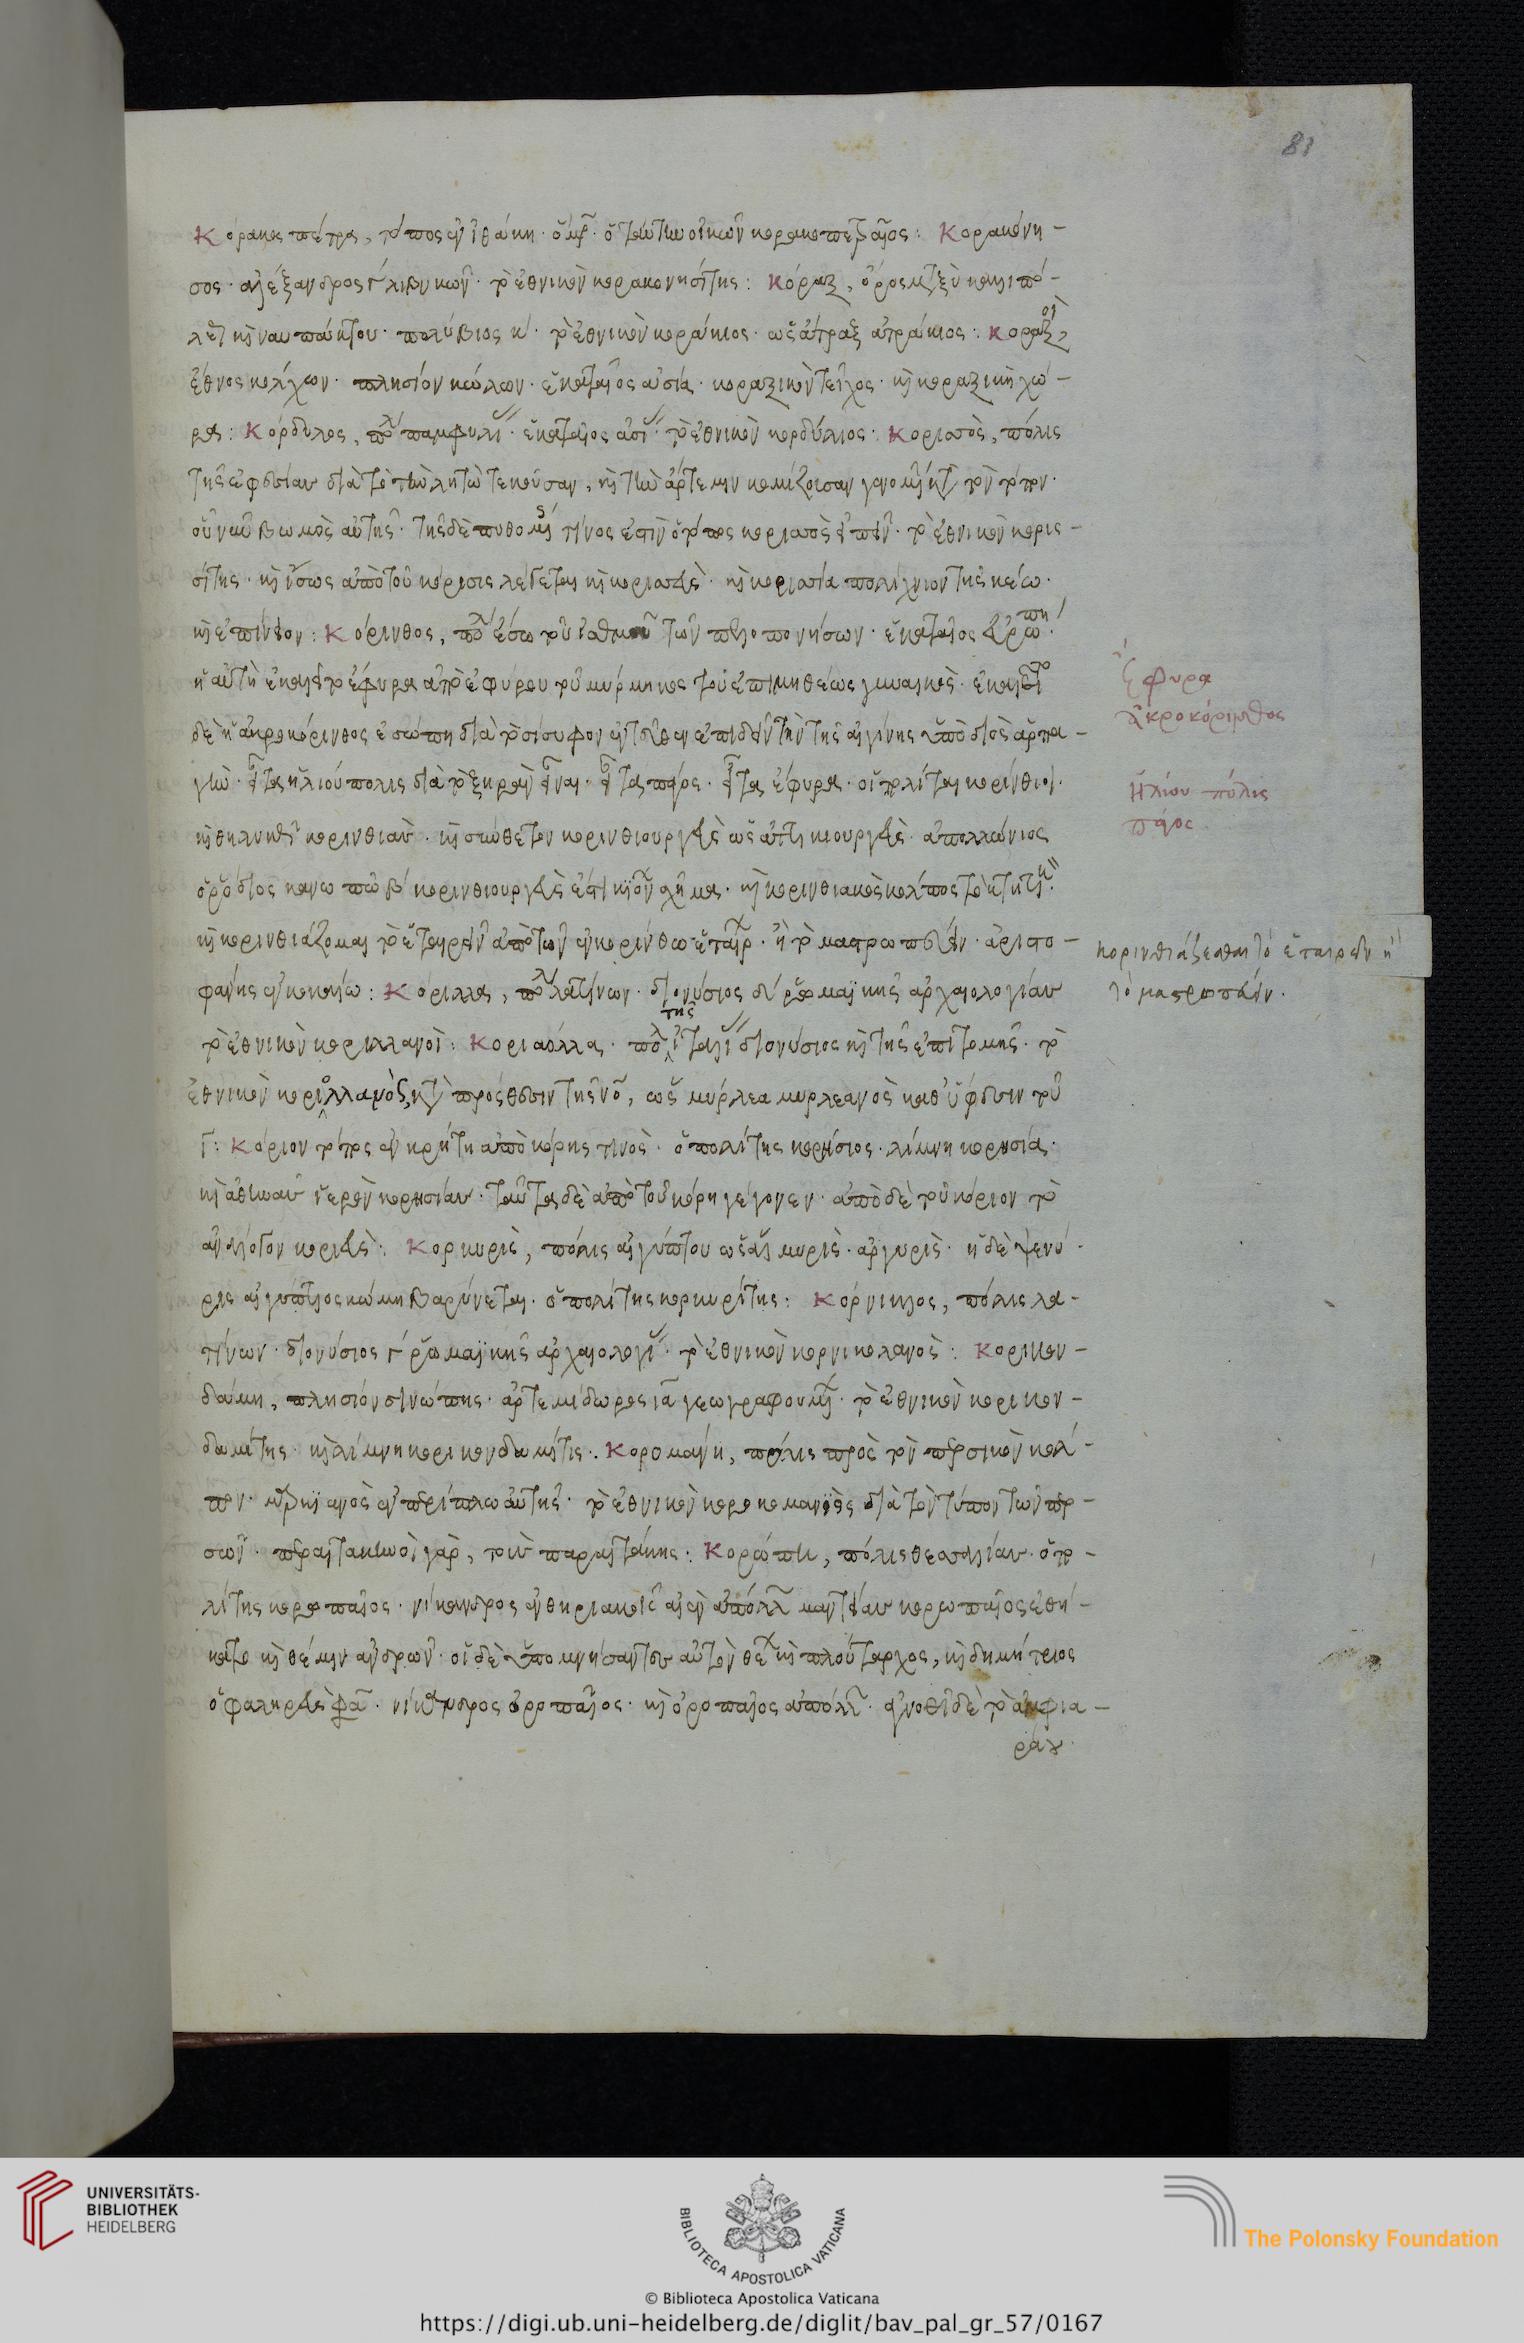 81
Κόρακος πέτρα, τόπος ἐν ἰθάκη · ὅμρ · ὁ ταύτην οἰκῶν κορακοπετραῖος : Κορακόνη-
σος · ἀλέξανδρος γ λιβυκῶν · τὸ ἐθνικὸν κορακονησίτης : Κόραξ, ὄρος μεταξὺ καλλιπό-
λεως καὶ ναυπάκτου · πολύβιος κ · τὸ ἐθνικὸν κοράκιος · ὡς ἄτραξ ἀτράκιος : Κοραξοὶ,
ἔθνος κόλχων · πλησίον κώλων · ἑκαταῖος ἀσία · κοραξικὸν τεῖχος · καὶ κοραξικὴ χώ-
ρα : Κόρδυλος, πόλ παμφυλί · ἑκαταῖος ἀσί · τὸ ἐθνικὸν κορδύλιος · Κορισσὸς, πόλις
τῆς ἐφεσίας διὰ τὸ τὴν λητὼ τεκοῦσαν, καὶ τὴν ἄρτεμιν κομίζουσαν γενομένην κατὰ τὸν τόπον ·
οὗ νῦν βωμὸς αὐτῆς · τῆς δὲ πυθομένης τίνος ἐστὶν ὁ τόπος κορισσὸς εἰπεῖν · τὸ ἐθνικὸν κορισ-
σίτης · καὶ ἴσως ἀπὸ τοῦ κόρισις λέγεται καὶ κορισσεὺς · καὶ κορισσία πολίχνιον της κέω ·
καὶ ἐπίνειον : Κόρινθος, πόλ ἔσω τοῦ ἰσθμοῦ τῶν πελοποννήσων · ἑκαταῖος εὐρώπη ·
ἡ αὐτὴ ἐκαλεῖτο ἐφύρα ἀπὸ ἐφύρου τοῦ μύρμηκος τοῦ ἐπιμηθέως γυναικὸς · ἐκαλεῖτο
δὲ ἡ ἀκροκόρινθος ἐσώπη διὰ τὸ σίσυφον ἐντεῦθεν ἐπιδεῖν τὴν τῆς αἰγίνης ὑπὸ διὸς ἁρπα-
γὴν · εἶτα ἡλιούπολις διὰ τὸ ξηρὰν εἶναι · εἶτα πάγος · εἶτα ἐφύρα · οἱ πολίται κορίνθιοι ·
καὶ θηλυκῶς κορινθίαν · καὶ σύνθετον κορινθιουργὲς ὡς ἀττικουργὲς · ἀπολλώνιος
ὁ ῥόδιος κανώπω β κορινθιουργές ἐστι κιόνων σχῆμα · καὶ κορινθιακὸς κόλπος τὸ κτητικ ·
καὶ κορινθιάζομαι τὸ ἑταιρεῖν ἀπὸ τῶν ἐν κορίνθω ἑταιρ · ἢ τὸ μαστρωπεύειν · ἀριστο-
φάνης ἐν κωκάλω : Κόριλλα, πόλ λατίνων · διονύσιος δ ῥωμαϊκῆς ἀρχαιολογίας
τὸ ἐθνικὸν κοριλλανοὶ : Κοριόλλα · πόλ ἰταλί διονύσιος καὶ τῆς ἐπιτομῆς · τὸ
ἐθνικὸν κοριολλανὸς, κατὰ πρόσθεσιν τῆς νο, ὡς μύρλεα μυρλεανὸς καθ' ὕφεσιν τοῦ
Γ : Κόριον τόπος ἐν κρήτη ἀπὸ κόρης τινὸς · ὁ πολίτης κορήσιος · λίμνη κορησία ·
καὶ ἀθηνᾶς ἱερὸν κορησίας · ταῦτα δὲ ἀπὸ τοῦ κόρη γέγονεν · ἀπὸ δὲ τοῦ κόριον τὸ
ἀνάλογον κοριεὺς : Κορκυρὶς, πόλις αἰγύπτου ὡς ἁλμυρὶς · ἀργυρὶς · ἡ δὲ ψενύ
ρις αἰγύπτιος κώμη βαρύνεται · ὁ πολίτης κορκυρίτης : Κόρνικλος, πόλις λα-
τίνων · διονύσιος γ ῥωμαϊκῆς ἀρχαιολογί · τὸ ἐθνικὸν κορνικολανὸς : Κορικον-
δάμη, πλησίον σινώπης · ἀρτεμίδωρος ια γεωγραφουμέν · τὸ ἐθνικὸν κορικον-
δαμίτης · καὶ λίμνη κορικονδαμίτις : Κορομάνη, πόλις πρὸς τὸν περσικὸν κόλ-
πον · μαρκιανὸς ἐν περίπλω αὐτῆς · τὸ ἐθνικὸν κοροκομανεὺς διὰ τὸν τύπον τῶν περ-
σῶν · περαιτακηνοὶ γὰρ, τοὺς παραιτάκης : Κορόπη, πόλις θεσσαλίας · ὁ πο-
λίτης κοροπαῖος · νίκανδρος ἐν θηριακοῖς ἐν ᾗ ἀπόλλ μαντείας κοροπαῖος ἐθή-
κατο καὶ θέμιν ἀνδρῶν · οἱ δὲ ὑπομνήσαντες αὐτὸν θέ καὶ πλούταρχος, καὶ δημήτριος
ὁ φαληρεὺς φα · νίκανδρος ὀροπαῖος · καὶ ὀροπαῖος ἀπόλλ · ἀγνοεῖ δὲ τὸ ἀμφια-
ράου
Ἐφύρα
ἀκροκόρινθος
Ἡλίου πόλις
πάγος
κορινθιάζεσθαι τὸ ἑταιρεῖν ἢ
τὸ μαστροπεύειν ·
UNIVERSITÄTS-
BIBLIOTHEK
HEIDELBERG
BIBLIOTECA APOSTOLICA VATICANA
The Polonsky Foundation
© Biblioteca Apostolica Vaticana
https://digi.ub.uni-heidelberg.de/diglit/bav_pal_gr_57/0167